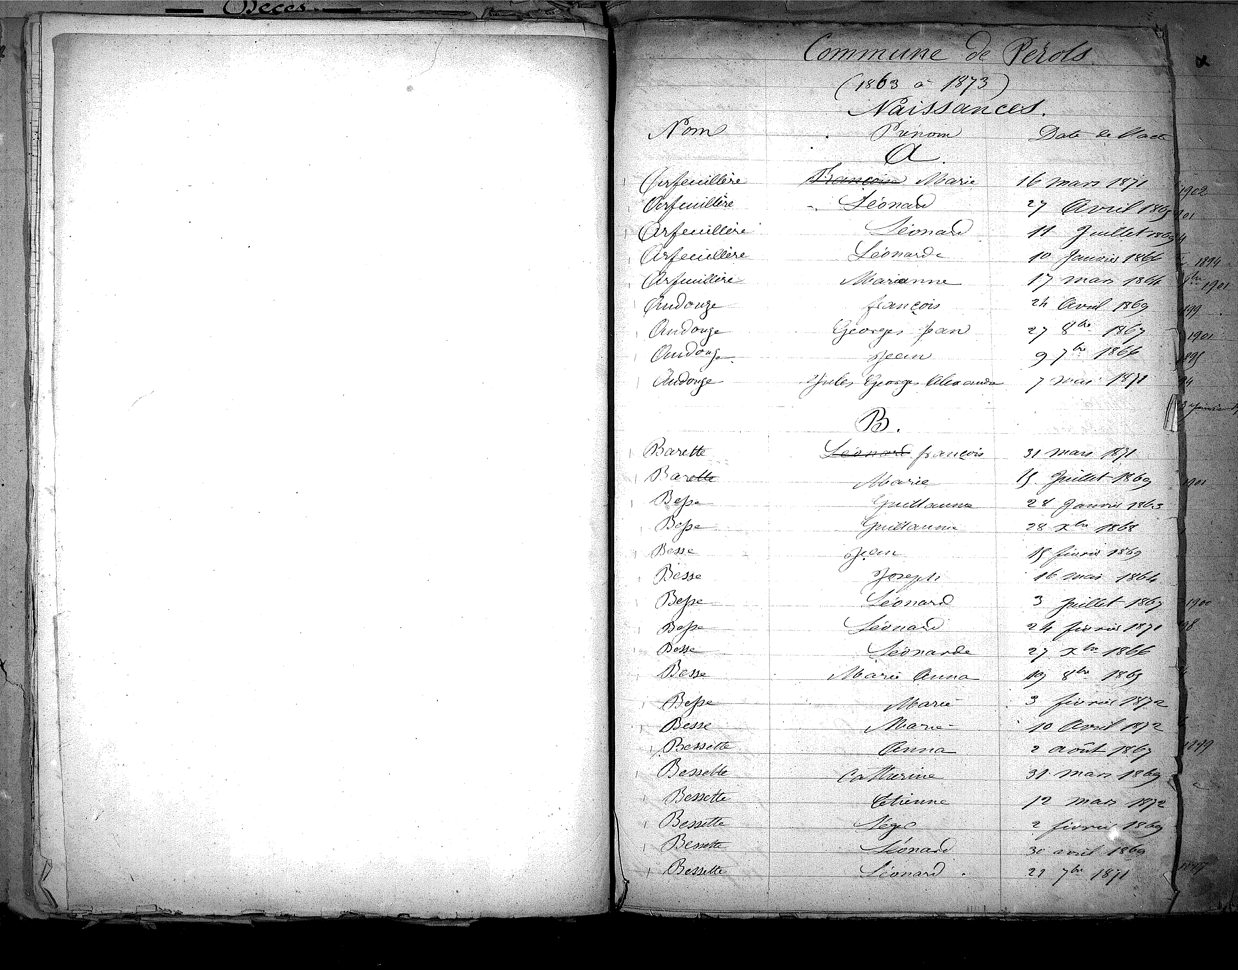 Décès
Commune de Pérols
(1863 à 1873)
Naissances.
Nom Prénom Date de l'acte
A.
Arfeuillère François Marie 16 mars 1871
Arfeuillère Léonard 27 Avril 1869
Arfeuillère Léonard 11 Juillet 1869
Arfeuillère Léonarde 10 Janvier 1866
Arfeuillère Marianne 17 mars 1864
Audouze françois 24 Avril 1869
Audouze Georges Jean 27 8bre 1867
Audouze Jean 9 7bre 1866
Audouze Jules Georges Alexandre 7 mai 1871
B.
Barette Léonard françois 31 mars 1871
Barette Marie 15 Juillet 1869
Besse Guillaume 28 Janvier 1863
Besse Guillaume 28 Xbre 1868
Besse Jean 15 février 1869
Besse Joseph 16 mai 1864
Besse Léonard 3 Juillet 1867
Besse Léonard 24 février 1871
Besse Léonarde 27 Xbre 1866
Besse Marie Anna 19 8bre 1865
Besse Marie 3 février 1872
Besse Marie 10 Avril 1872
Bessette Anna 2 août 1867
Bessette Catherine 31 mars 1869
Bessette Etienne 12 mars 1872
Bessette 2 février 1869
Bessette Léonard 30 avril 1869
Bessette Léonard 22 7bre 1871